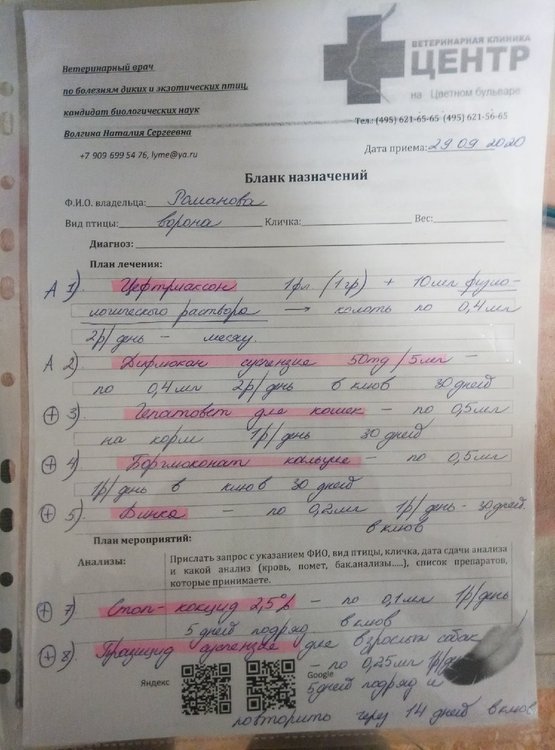 ВЕТЕРИНАРНАЯ КЛИНИКА
ЦЕНТР
на Цветном бульваре
Тел.: (495) 621-65-65 (495) 621-56-65
Ветеринарный врач
по болезням диких и экзотических птиц,
кандидат биологических наук
Волгина Наталия Сергеевна
+7 909 699 54 76, lyme@ya.ru
Дата приема: 29 09 2020
Бланк назначений
Ф.И.О. владельца: Романова
Вид птицы: ворона Кличка: Вес:
Диагноз:
План лечения:
А 1). Цефтриаксон 1фл (1гр) + 10мл физио-
логического раствора → колоть по 0,4мл
2р/день – месяц.
А 2). суспензия 50mg/5мл –
по 0,4мл 2р/день в клюв 30 дней
+ 3). Гепатовет для кошек – по 0,5мл
на корм 1р/день 30 дней
+ 4). Борглюконат кальция – по 0,5мл
1р/день в клюв 30 дней
+ 5). – по 0,2мл 1р/день - 30дней
в клюв
План мероприятий:
Анализы: Прислать запрос с указанием ФИО, вид птицы, кличка, дата сдачи анализа
и какой анализ (кровь, помет, баканализы.....), список препаратов,
которые принимаете.
+ 7) Стоп-кокцид 2,5% – по 0,1мл 1р/день
5 дней подряд в клюв
+ 8). Празицид суспензия для взрослых собак
– по 0,25мл 1р/день
Яндекс Google
5дней подряд и
повторить через 14 дней в клюв